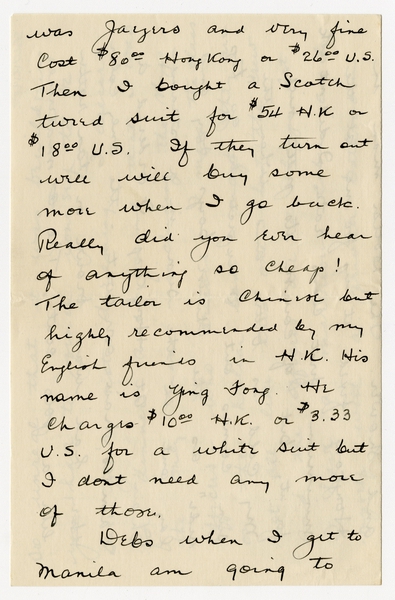 was Jaegers and very fine
Cost $80⁰⁰ Hong Kong or $26⁰⁰ U.S.
Then I bought a Scotch
tweed suit for $54 H.K or
$18⁰⁰ U.S. If they turn out
well will buy some
more when I go back.
Really did you ever hear
of anything so cheap!
The tailor is Chinese but
highly recommended by my
English friends in H.K. His
name is Ying Fong. He
Charges $10⁰⁰ H.K. or $3.33
U.S. for a white suit but
I dont need any more
of those.
Debs when I get to
Manila am going to